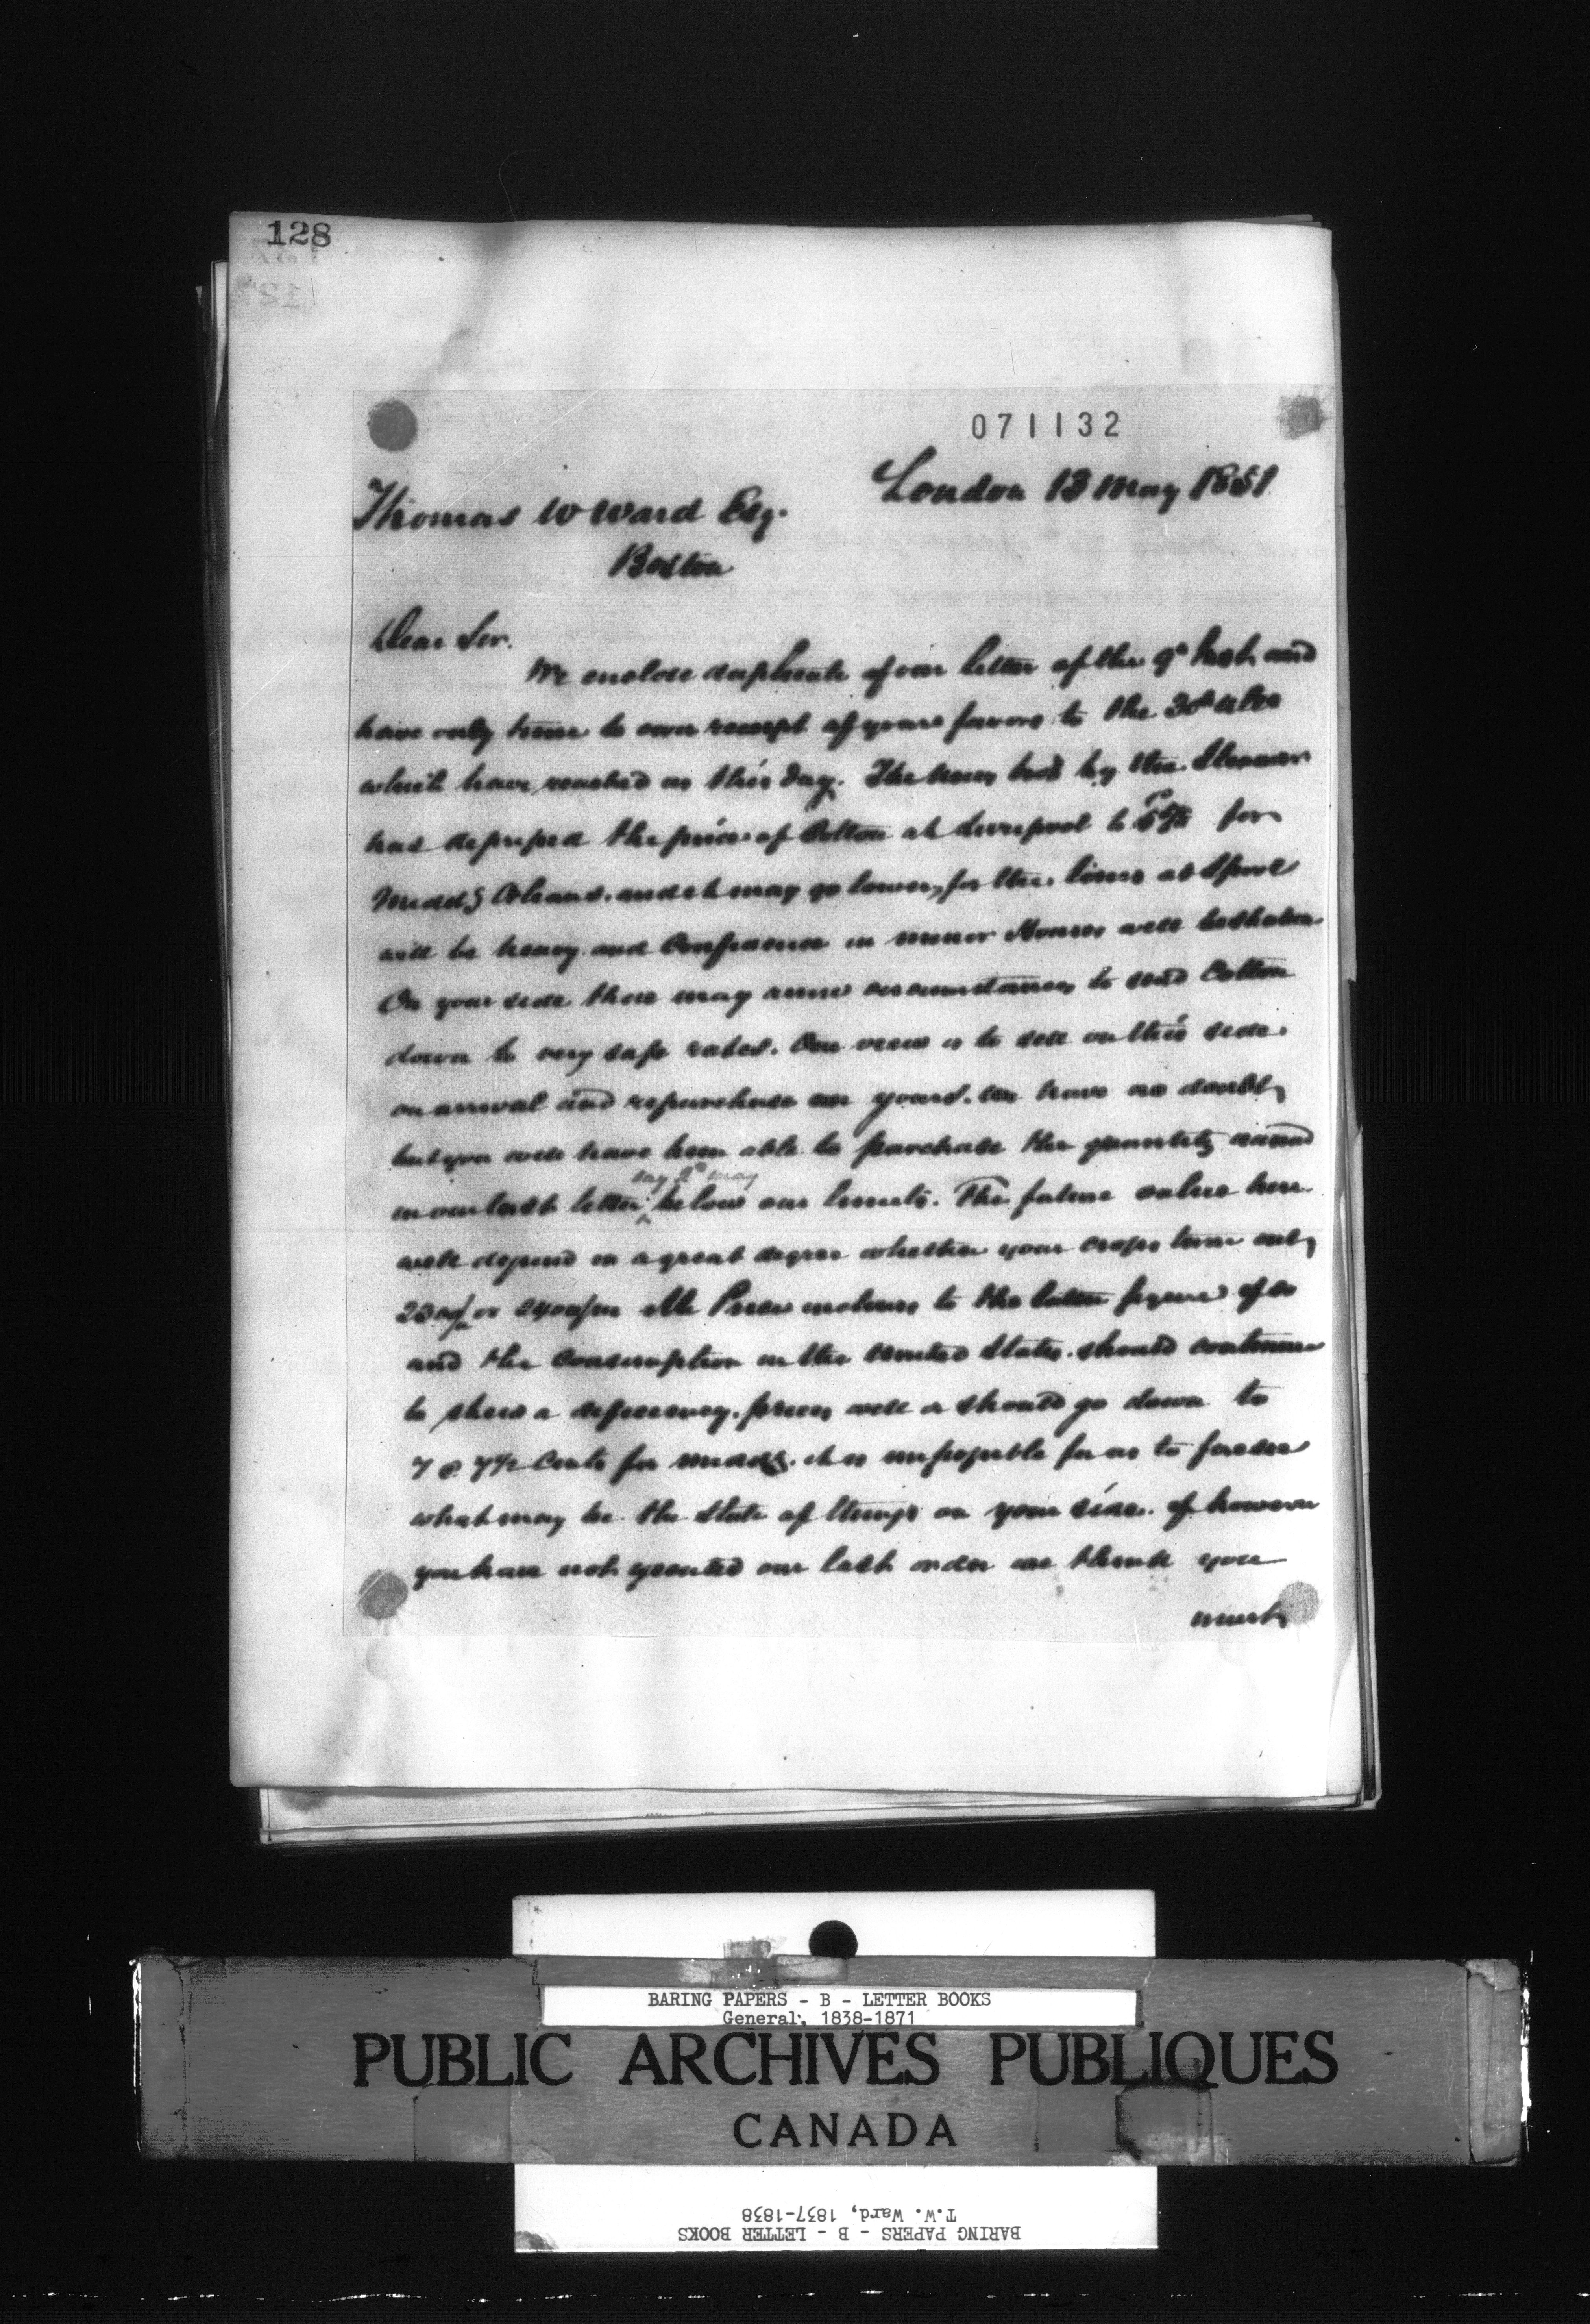 128
071132
London 13 May 1851
Thomas W Ward Esq.
Boston
Dear Sir.
We enclose duplicate of our letter of the 9th Inst. and
have only time to own receipt of yours favors to the 30th ulto
which have reached us this day. The news by the Steamer
has depressed the price of Cotton at Liverpool to for
Midds Orleans. and it may go lower, for the losses at Lpool
will be heavy and Confidence in minor Houses will be shaken
On your side there may arise circumstances to send Cotton
down to very safe rates. Our view is to sell on this side
on arrival and repurchase on yours. We have no doubt
but you will have been able to purchase the quantity named
say 2d May
in our last letter below our limits. The future value here
will depend in a great degree whether your crops turn out
23 or 2400/m Mr inclines to the latter figure if so
and the Consumption in the United States should continue
to shew a deficiency. prices will or should go down to
7 @ 7½ Cents for Midds. it is impossible for us to foresee
what may be the State of things on your side. if however
you have not executed our last order we think you
must
BARING PAPERS - B - LETTER BOOKS
General, 1838-1871
PUBLIC ARCHIVES PUBLIQUES
CANADA
BARING PAPERS - B - LETTER BOOKS
T.W. Ward, 1837-1838